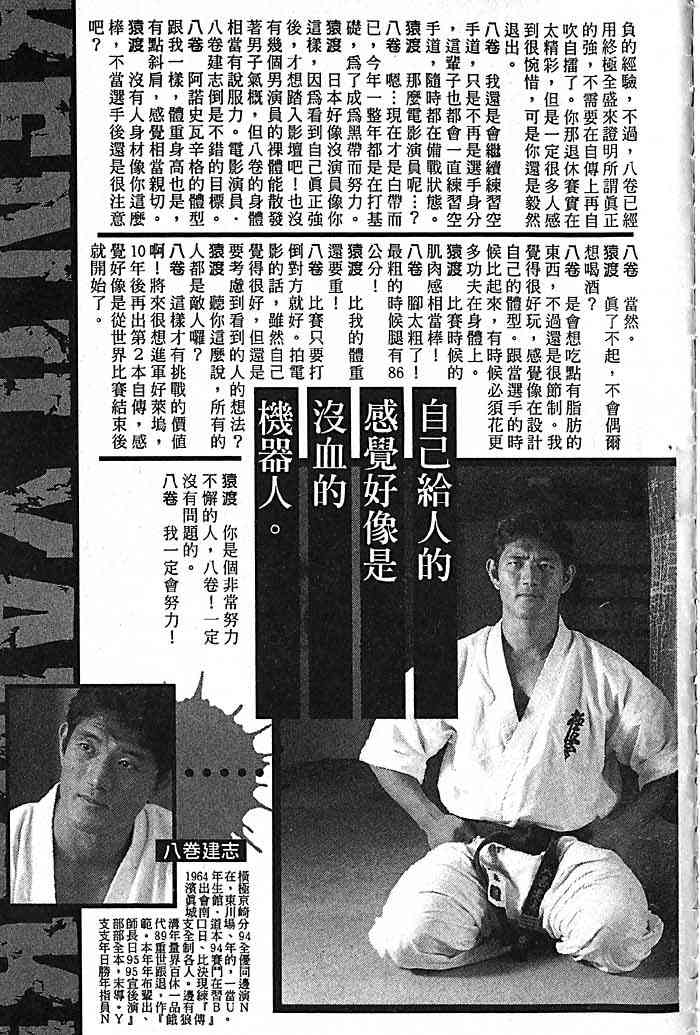 負的經驗，不過，八卷已經
用終極全盛來證明所謂眞正
的強，不需要在自傳上再自
吹自擂了。你那退休賽實在
太精彩，但是一定很多人感
到很惋惜，可是你還是毅然
退出。
八卷　我還是會繼續練習空
手道，只是不再是選手身分
，這輩子也都會一直練習空
手道，隨時都在備戰狀態。
猿渡　那麼電影演員呢…？
八卷　嗯…現在才是白帶而
已，今年一整年都是在打基
礎，爲了成爲黑帶而努力。
猿渡　日本好像沒演員像你
這樣，因爲看到自己眞正強
後，才想踏入影壇吧！也沒
有幾個男演員的裸體能散發
著男子氣概，但八卷的身體
相當有說服力。電影演員．
八卷建志倒是不錯的目標。
八卷　阿諾史瓦辛格的體型
跟我一樣，體重身高也是，
有點斜肩，感覺相當親切。
猿渡　沒有人身材像你這麼
棒，不當選手後還是很注意
吧？
八卷　當然。
猿渡　眞了不起，不會偶爾
想喝酒？
八卷　是會想吃點有脂肪的
東西，不過還是很節制。我
覺得很好玩，感覺像在設計
自己的體型。跟當選手的時
候比起來，有時候必須花更
多功夫在身體上。
猿渡　比賽時候的
肌肉感相當棒！
八卷　腳太粗了！
最粗的時候腿有86
公分！
猿渡　比我的體重
還要重！
八卷　比賽只要打
倒對方就好。拍電
影的話，雖然自己
覺得很好，但還是
要考慮到看到的人的想法？
猿渡　聽你這麼說，所有的
人都是敵人囉？
八卷　這樣才有挑戰的價值
啊！將來很想進軍好萊塢，
10年後再出第2本自傳，感
覺好像是從世界比賽結束後
就開始了。
自己給人的
感覺好像是
沒血的
機器人。
猿渡　你是個非常努力
不懈的人，八卷！一定
沒有問題的。
八卷　我一定會努力！
……
八卷建志
1964年在橫
濱出生，極
眞會館．東京
城南．川崎
支部師範代溝口道場分
支部長。89年全日本、94
年全日本重量制、94年全
日本，95年世界各比賽的優
勝，95年跟百人決鬥，同
年末宣布退休。現在一邊
指導後輩，一邊練習當演
員．演出作品有『BUN
NY』、『餓狼傳』。
極眞会